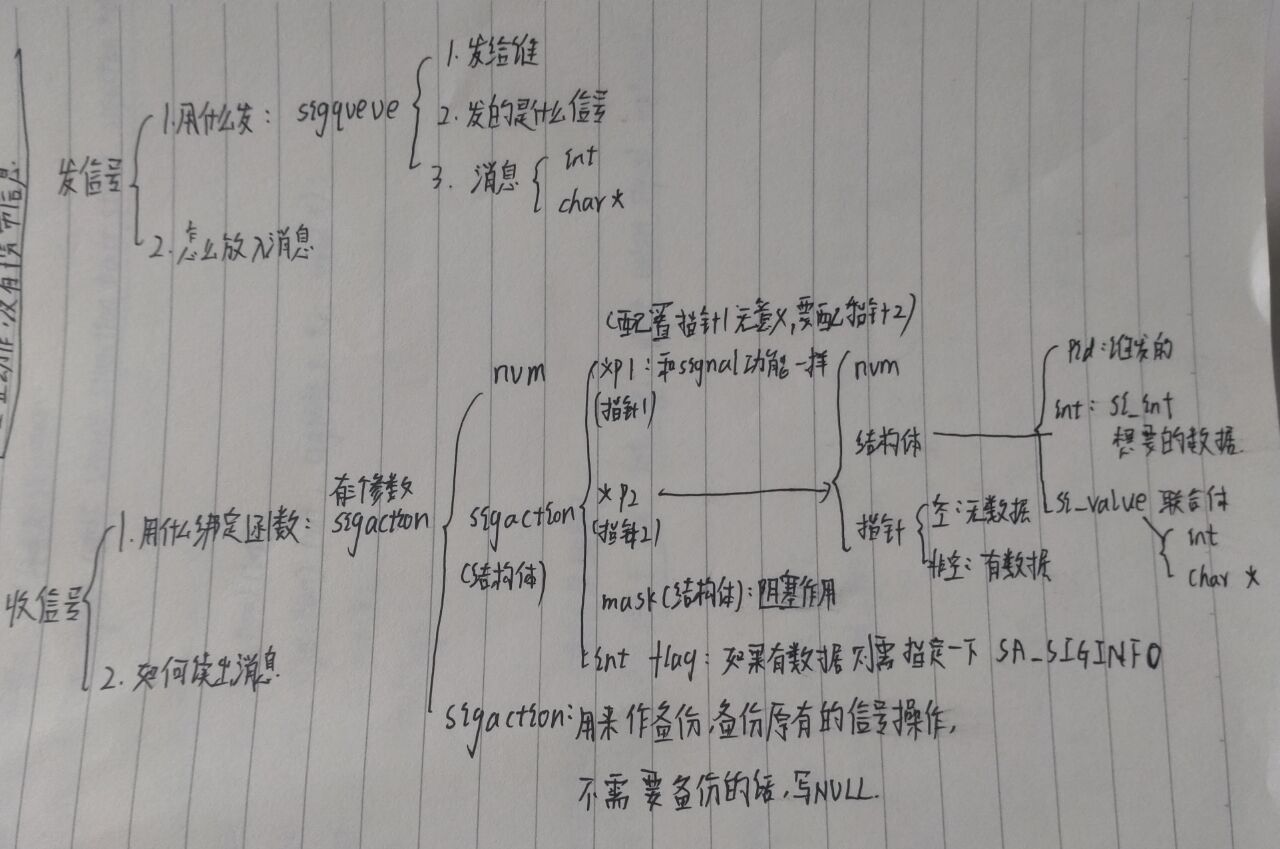 发信号
1.用什么发：sigqueue
1.发给谁
2.发的是什么信号
3.消息
int
char *
2.怎么放入消息
收信号
1.用什么绑定函数：
有三个参数
sigaction
num
sigaction
(结构体)
(配置指针1无意义,要配指针2)
*p1：和signal功能一样
(指针1)
*p2
(指针2)
num
结构体
pid：谁发的
int：si_int
想要的数据
si_value 联合体
int
char *
指针
空：无数据
非空：有数据
mask(结构体)：阻塞作用
int flag：如果有数据则需指定一下 SA_SIGINFO
sigaction：用来作备份,备份原有的信号操作,
不需要备份的话,写NULL.
2.如何读出消息